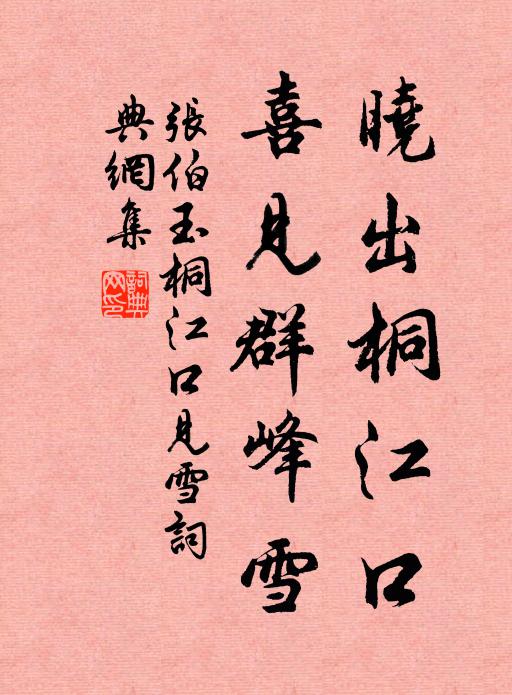 曉出桐江口
喜見群峰雪
張伯玉桐江口見雪詞
典網集
詞典網印